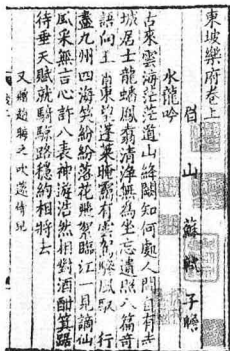 東坡樂府卷上
眉山 蘇軾 子瞻
水龍吟
古來雲海茫茫道山絳闕知何處人間自有赤
城居士龍蟠鳳翥清淨無為坐忘遺照八篇奇
語向玉霄東望蓬萊晻靄有雲駕驂鳳馭 行
盡九州四海笑紛紛落花飛絮臨江一見謫仙
風采無言心許八表神游浩然相對酒酣箕踞
待垂天賦就騎鯨路穩約相將去
又 贈趙晦之吹笛侍兒